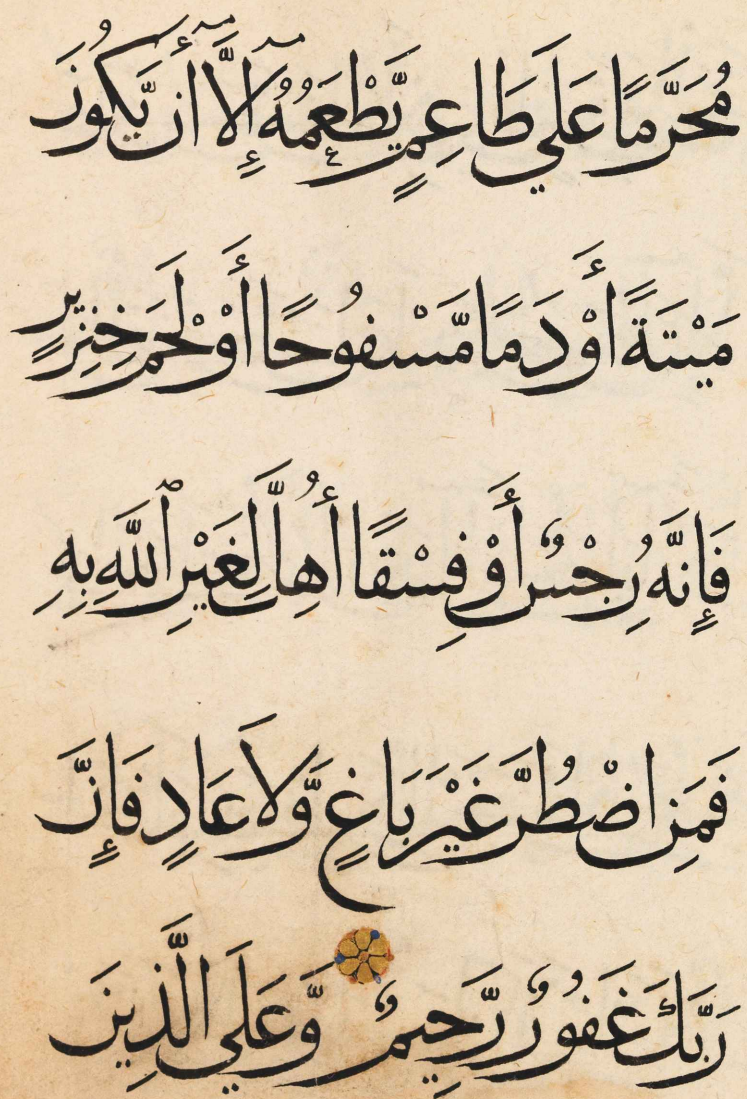 مُحَرَّمًا عَلَي طَاعِمٍ يَّطْعَمُهُ إِلَّا أَن يَّكُونَ
مَيْتَةً أَوْ دَمًا مَّسْفُوحًا أَوْ لَحْمَ خِنزِيرٍ
فَإِنَّهُ رِجْسٌ أَوْ فِسْقًا أُهِلَّ لِغَيْرِ اللَّهِ بِهِ
فَمَنِ اضْطُرَّ غَيْرَ بَاغٍ وَّلَا عَادٍ فَإِنَّ
رَبَّكَ غَفُورٌ رَّحِيمٌ وَّعَلَي الَّذِينَ